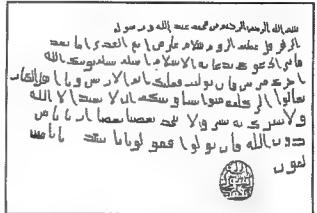 بسم الله الرحمن الرحيم من محمد عبد الله ورسوله
الى هرقل عظيم الروم سلام على من اتبع الهدى اما بعد
فانى ادعوك بدعاية الاسلام اسلم تسلم يوتك الله
اجرك مرتين فان توليت فعليك اثم الاريسيين ويا اهل الكتاب
تعالوا الى كلمة سوا بيننا وبينكم ان لا نعبد الا الله
ولا نشرك به شيا ولا يتخذ بعضنا بعضا اربابا من
دون الله فان تولوا فقولوا اشهدوا بانا مس
لمون
الله
رسول
محمد